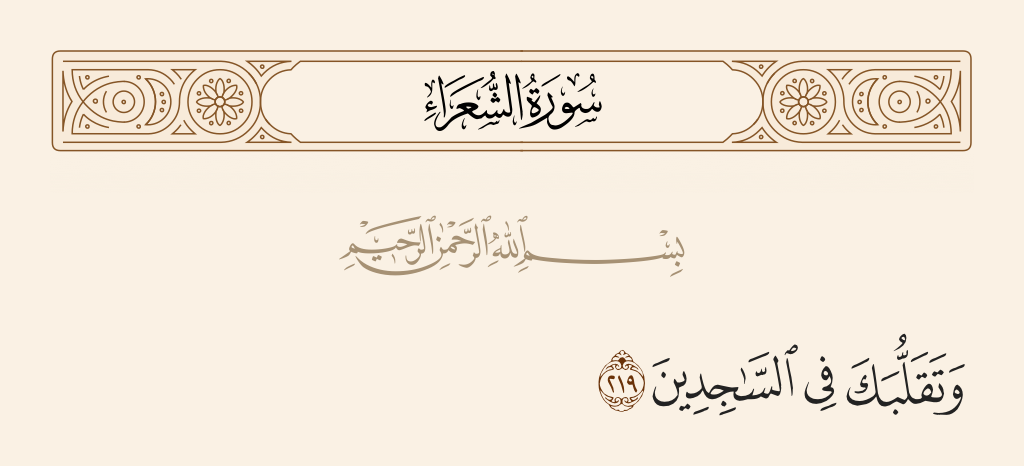 سُورَةُ الشُّعَرَاءِ
بِسْمِ ٱللَّهِ ٱلرَّحْمَٰنِ ٱلرَّحِيمِ
وَتَقَلُّبَكَ فِى ٱلسَّـٰجِدِينَ ٢١٩